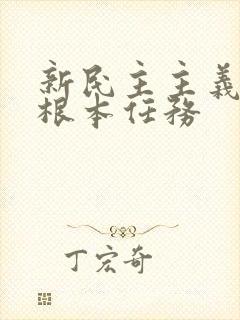 新民主主義
根本任務
丁宏奇